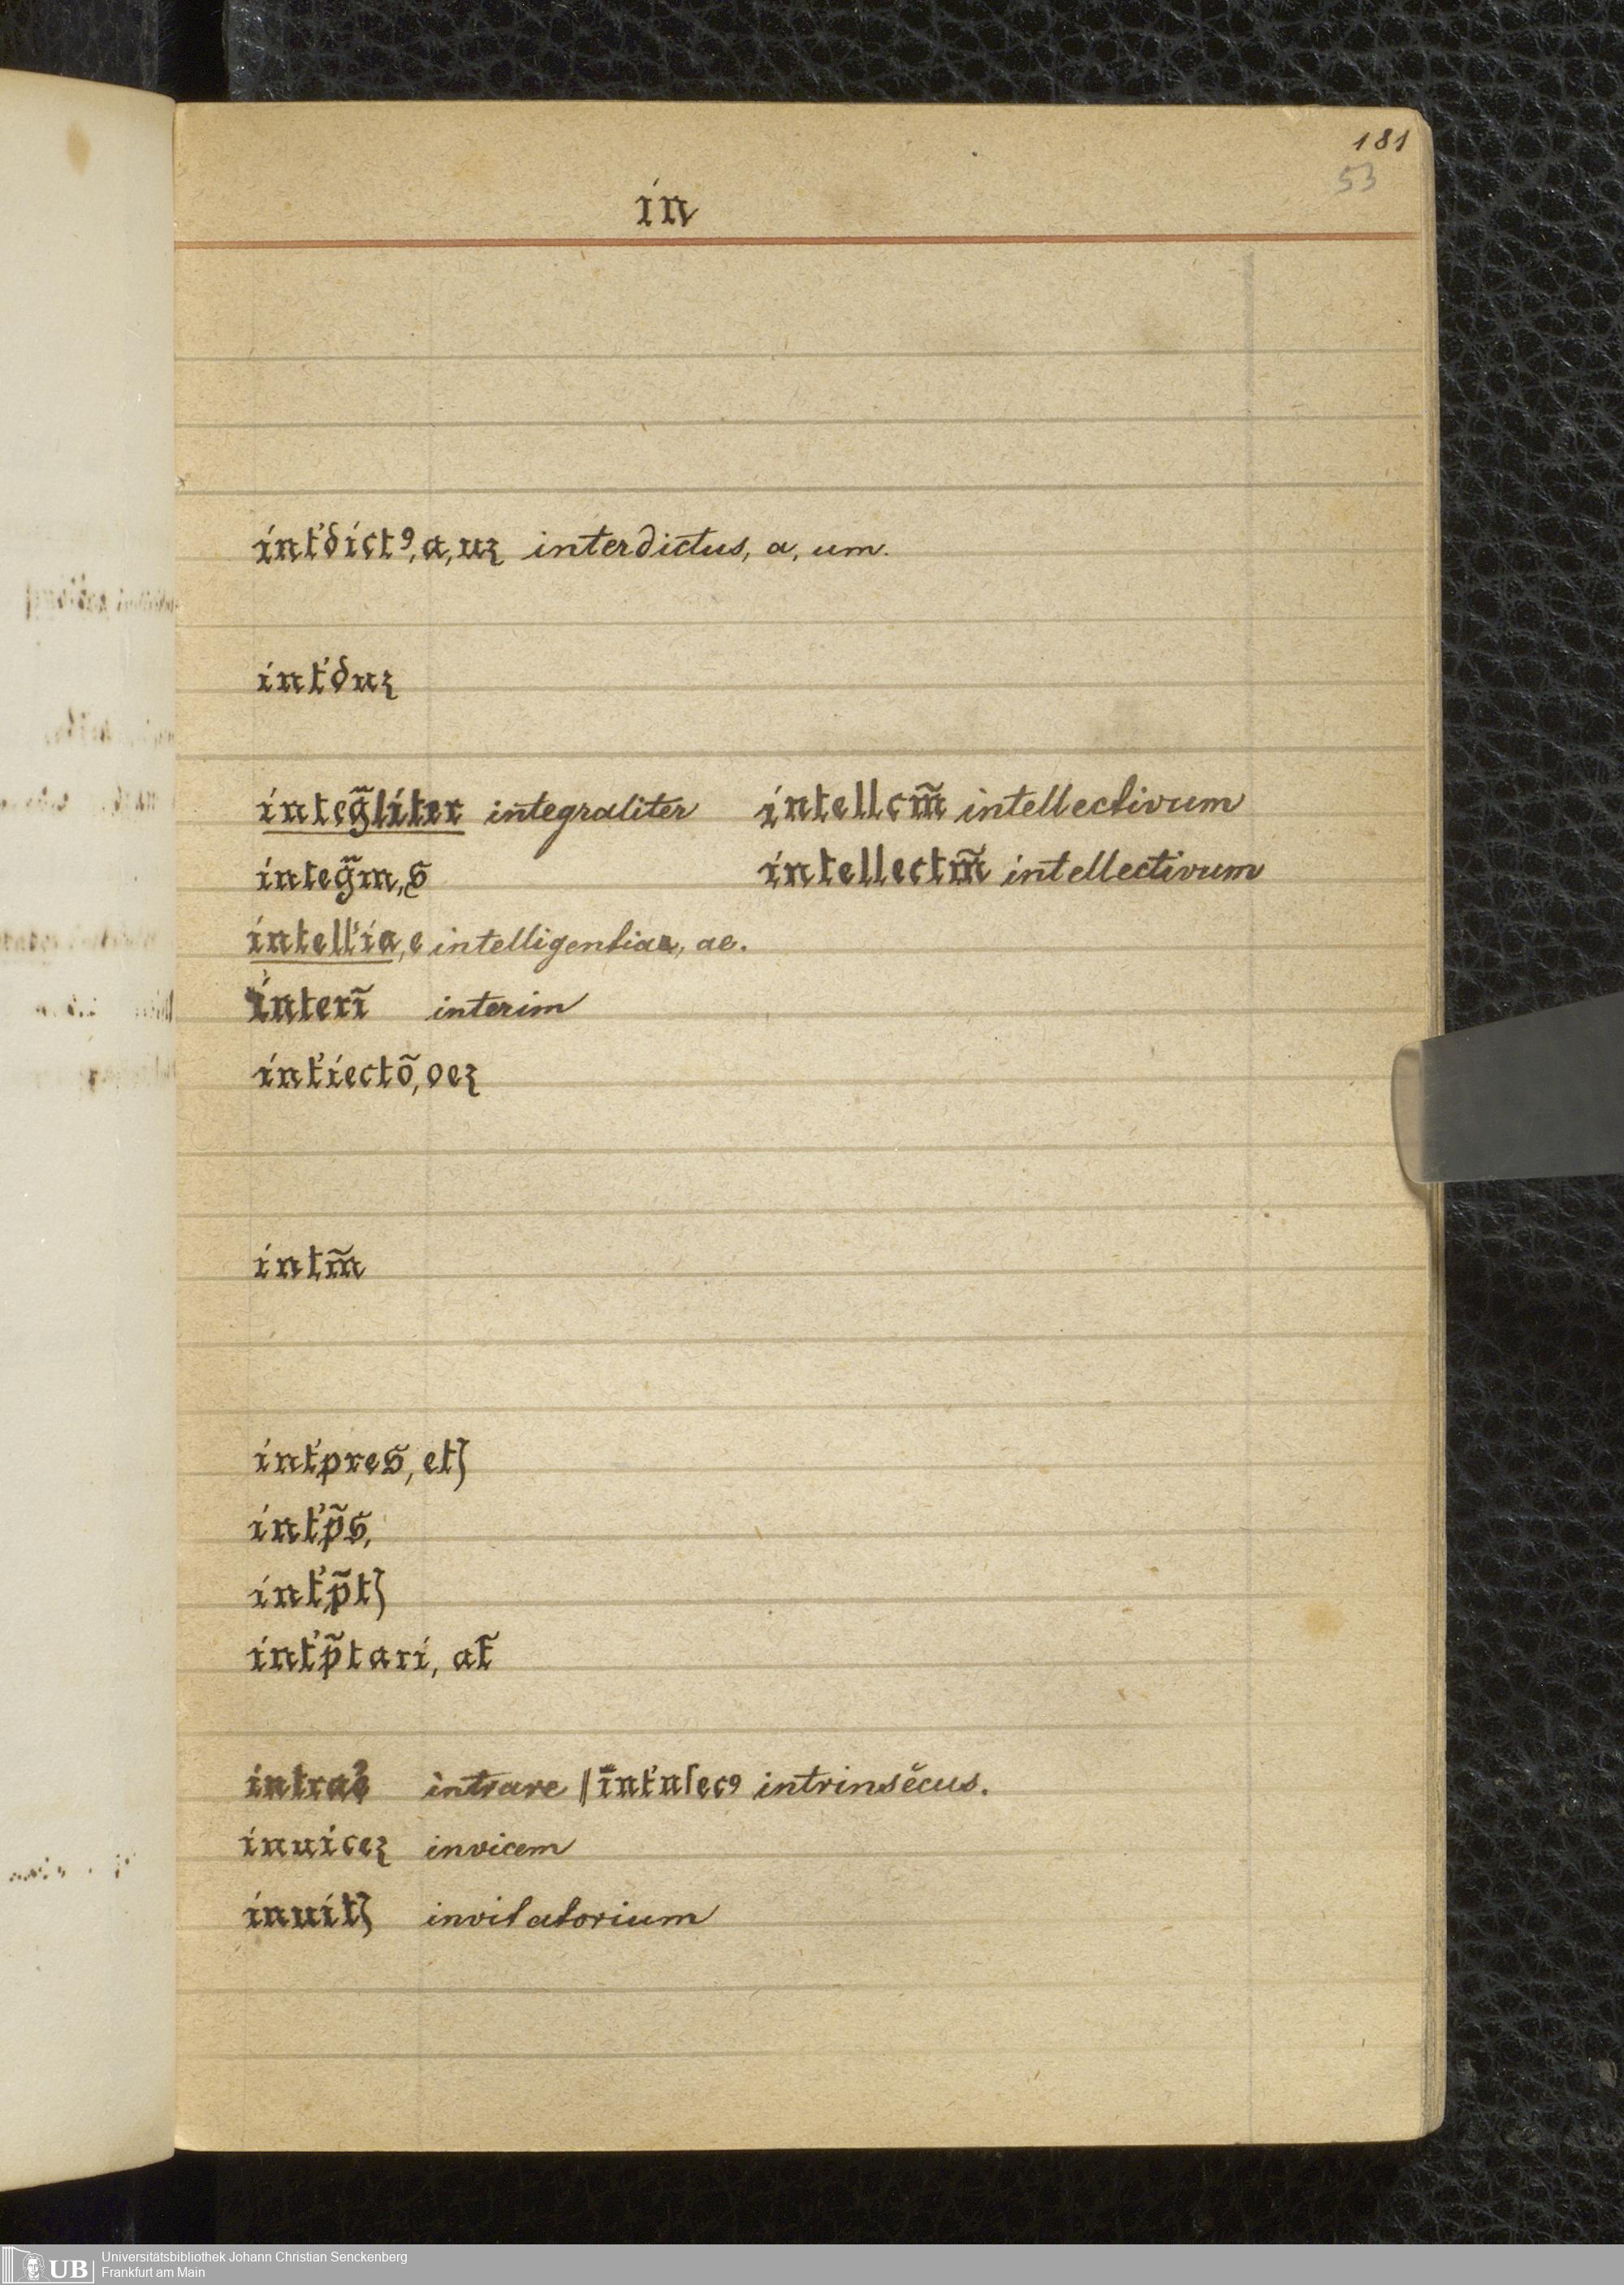 181
53
in
int'dictꝰ, a, uȝ interdictus, a, um.
int'duȝ
integ̃liter integraliter intellcm̃ intellectivum
integ̃m, s intellectm̃ intellectivum
intell'ia, e intelligentiae, ae.
interĩ interim
int'iectõ, oeȝ
intm̃
int'pres, etꝭ
int'p̃s,
int'p̃tꝭ
int'p̃tari, at̃
intrare || int'nſecꝰ intrinsĕcus.
inuiceȝ invicem
inuitꝭ invitatorium
UB Universitätsbibliothek Johann Christian Senckenberg
Frankfurt am Main